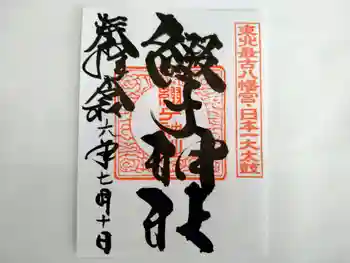 東北最古八幡宮・日本一大太鼓
綴子神社
奉拝 令和六年七月十日